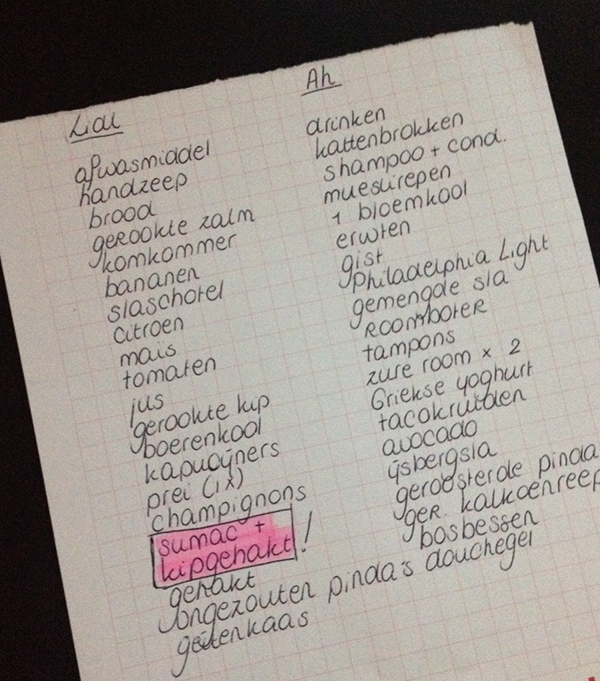 Lidl
afwasmiddel
handzeep
brood
gerookte zalm
komkommer
bananen
slaschotel
citroen
mais
tomaten
jus
gerookte kip
boerenkool
kapucijners
prei (1x)
champignons
sumac +
kipgehakt !
gehakt
ongezouten pinda's
geitenkaas
Ah
drinken
kattenbrokken
shampoo + cond.
mueslirepen
1 bloemkool
erwten
gist
Philadelphia Light
gemengde sla
Roomboter
tampons
zure room x 2
Griekse yoghurt
tacokruiden
avocado
ijsbergsla
geroosterde pinda
ger. kalkoenreep
bosbessen
douchegel